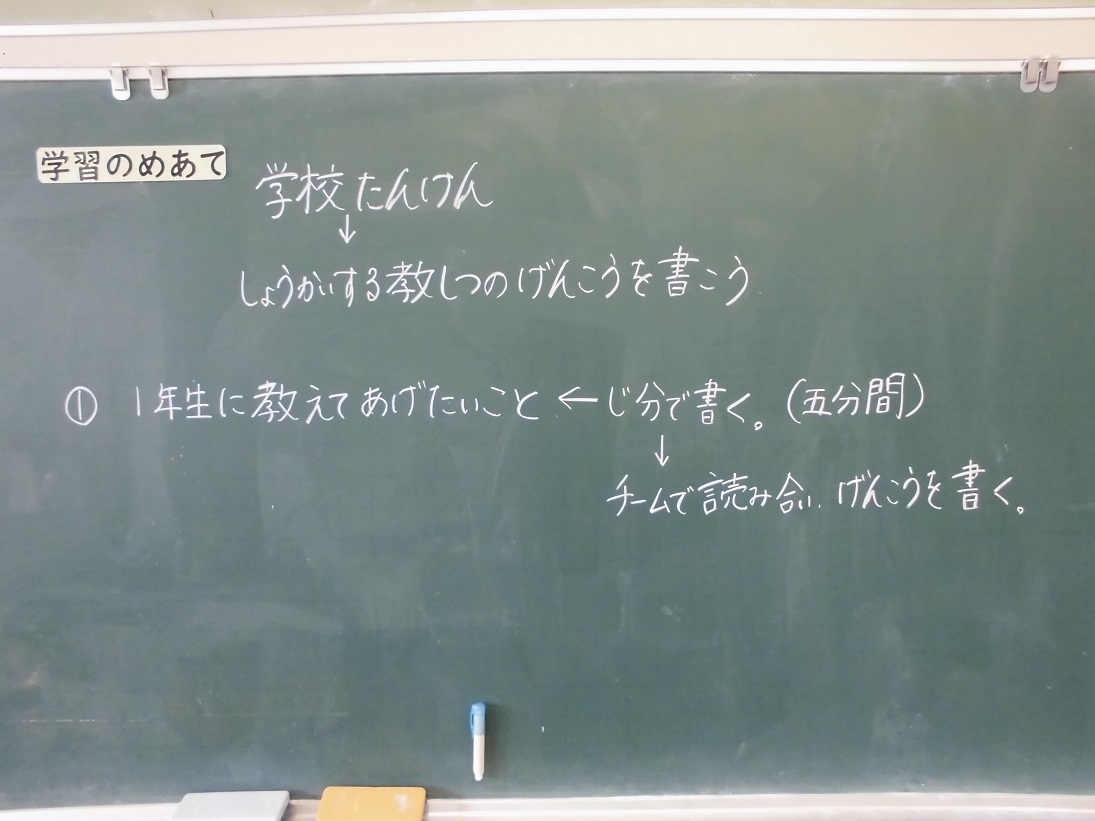 学習のめあて
学校たんけん
↓
しょうかいする教しつのげんこうを書こう
① 1年生に教えてあげたいこと ← じ分で書く。(五分間)
↓
チームで読み合い、げんこうを書く。